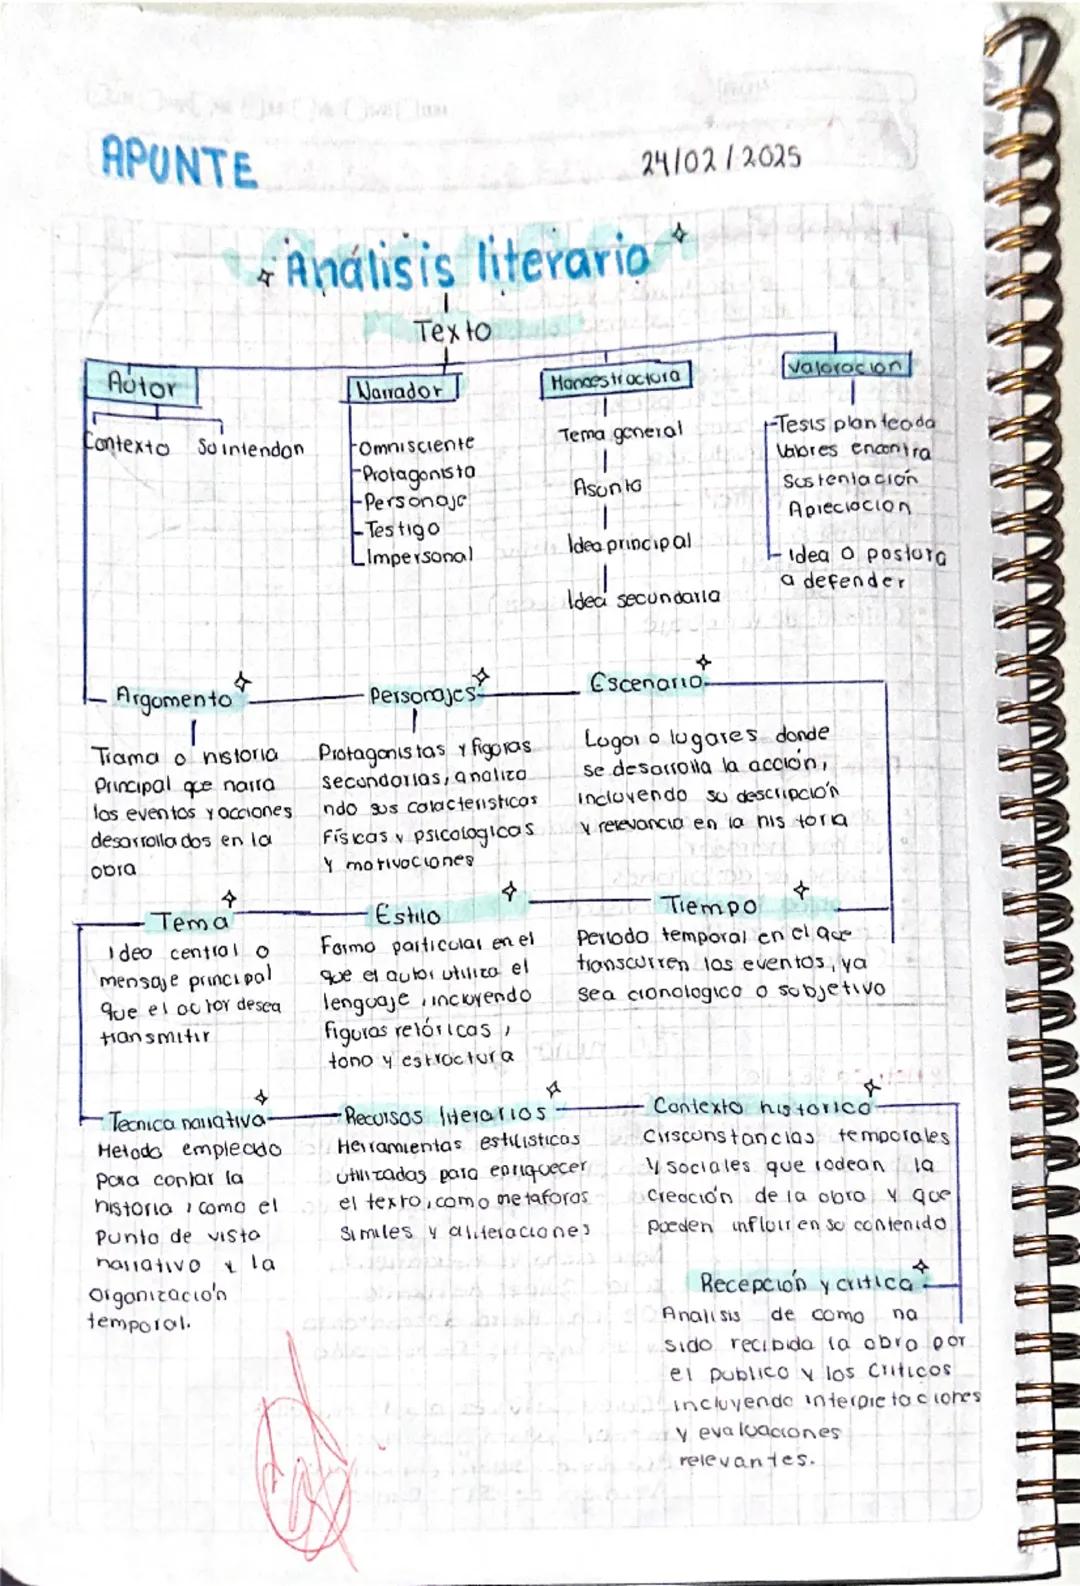 APUNTE
24/02/2025
Análisis literario
Texto
Autor
Contexto
Su intendon
Narrador
Omnisciente
Protagonista
Personaje
Testigo
Impersonal
Tema general
Asunto
Idea principal
Idea secundaria
Valoracion
Tesis planteada
Valores encontra
Sustentación
Apreciacion
Idea o postura
a defender
Argumento
Trama o historia
Principal que narra
los eventos y acciones
desarrollados en la
obra
Personajes
Protagonistas y figuras
secundarias, analiza
ndo sus caracteristicas
Físicas y psicologicas
y motivaciones
Escenario
Lugar o lugares donde
se desarrolla la acción,
incluyendo su descripción
y relevancia en la historia
Tema
Idea central o
mensaje principal
que el autor desea
transmitir
Estilo
Forma particular en el
que el autor utiliza el
lenguaje, incluyendo
figuras retóricas,
tono y estructura
Tiempo
Periodo temporal en el que
transcurren los eventos, ya
sea cronologico o subjetivo
Tecnica narrativa
Metodo empleado
para contar la
historia, como el
Punto de vista
narrativo y la
Organización
temporal.
Recursos literarios
Herramientas estilisticas
utilizadas para enriquecer
el texto, como metaforas
Similes y aliteraciones
Contexto historico
Cirscunstancias temporales
y sociales que rodean la
Creación de la obra y que
pueden influir en su contenido
Recepción y critica
Analisis de como ha
sido recibida la obra por
el publico y los Criticos
incluyendo interpretaciones
y evaluaciones
relevantes.